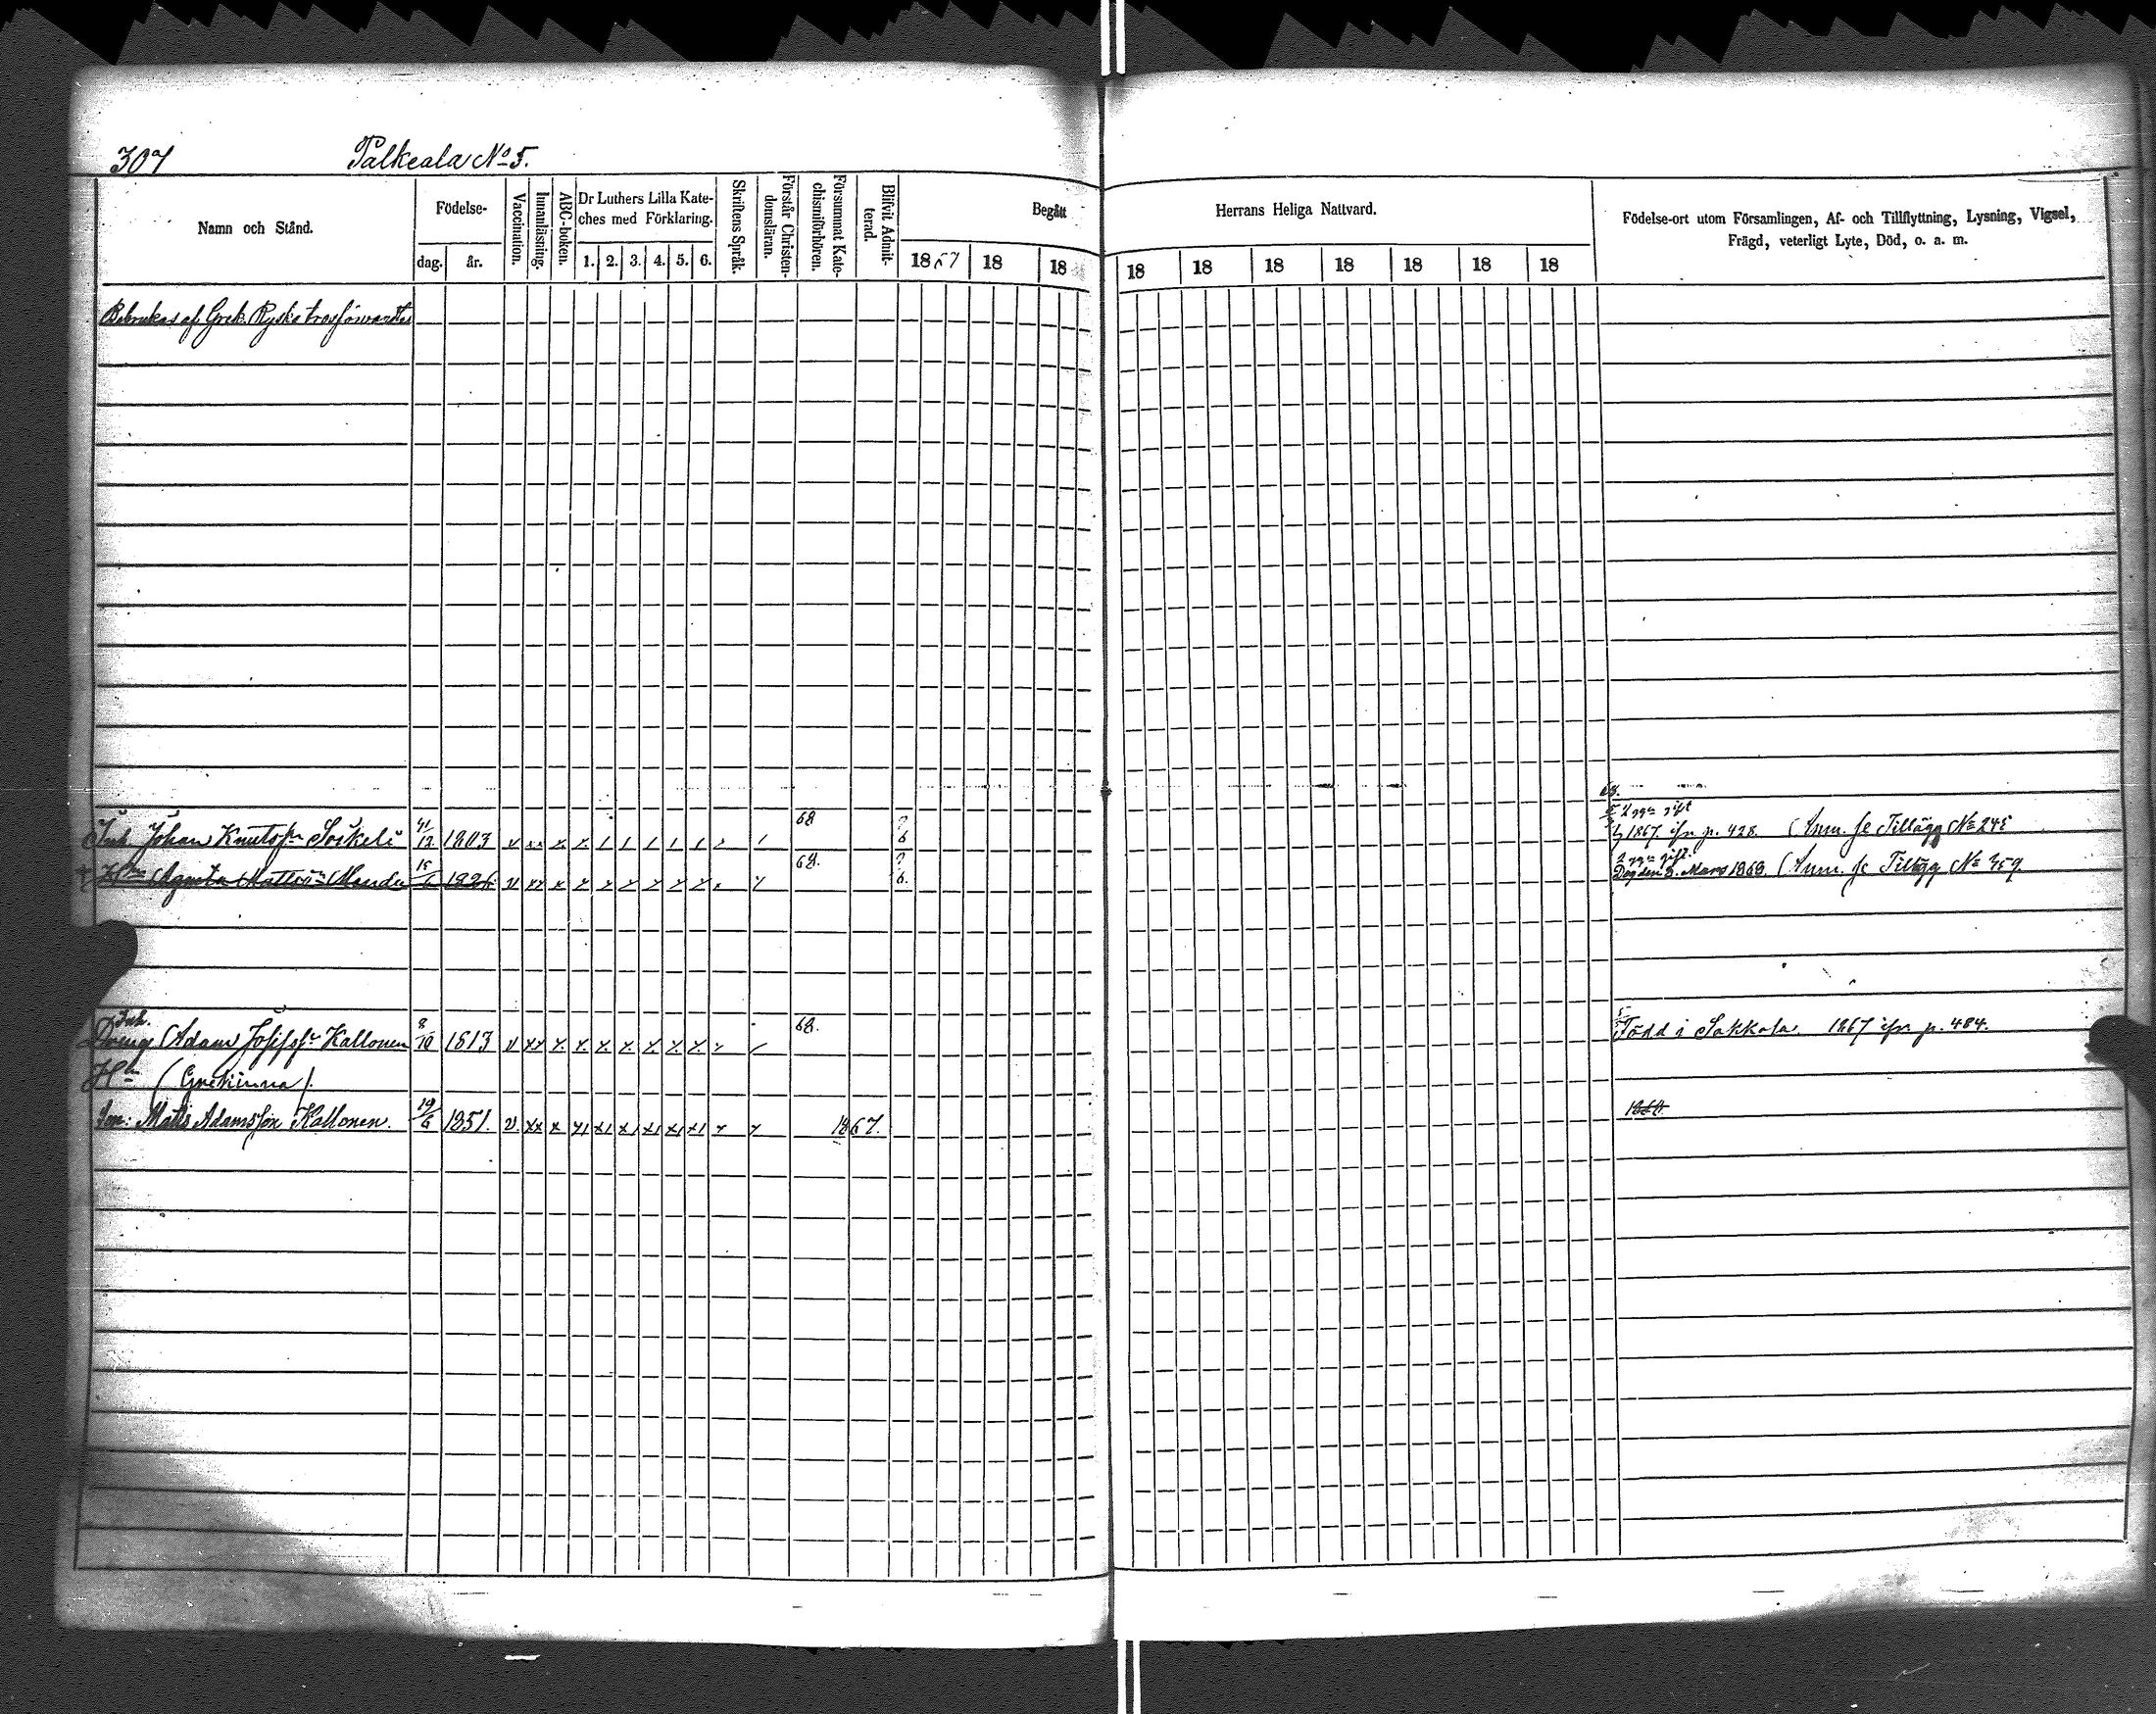 307
Palkeala No 5.
Namn och Stånd.
Födelse-
dag.
år.
Vaccination.
Innanläsning.
ABC-boken.
Dr Luthers Lilla Kate-
ches med Förklaring.
1. 2. 3. 4. 5. 6.
Skriftens Språk.
Förstår Christen-
domsläran.
Försummat Kate-
chismiförhören.
Blifvit Admit-
terad.
Begått
1867 18 18
Herrans Heliga Nattvard.
18 18 18 18 18 18 18
Födelse-ort utom Församlingen, Af- och Tillflyttning, Lysning, Vigsel,
Frägd, veterligt Lyte, Död, o. a. m.
Bebrukas af Grek. Ryska trosförvandter
Inh. Johan Knutss. 1803 68
2 ggr gift
1867 ifr. p. 428. (Anm. se Tillägg No 245
Agneta 68.
2 ggr gift.
Död den 3. Mars 1868. (Anm. se Tillägg No 459.
Inh.
Dräng Adam Josefss. Kallonen 8/10 1813 68.
Född i Sakkola 1867 ifr. p. 484.
(Grekinna).
Son: Matts Adamsson Kallonen. 19/6 1851. 1867.